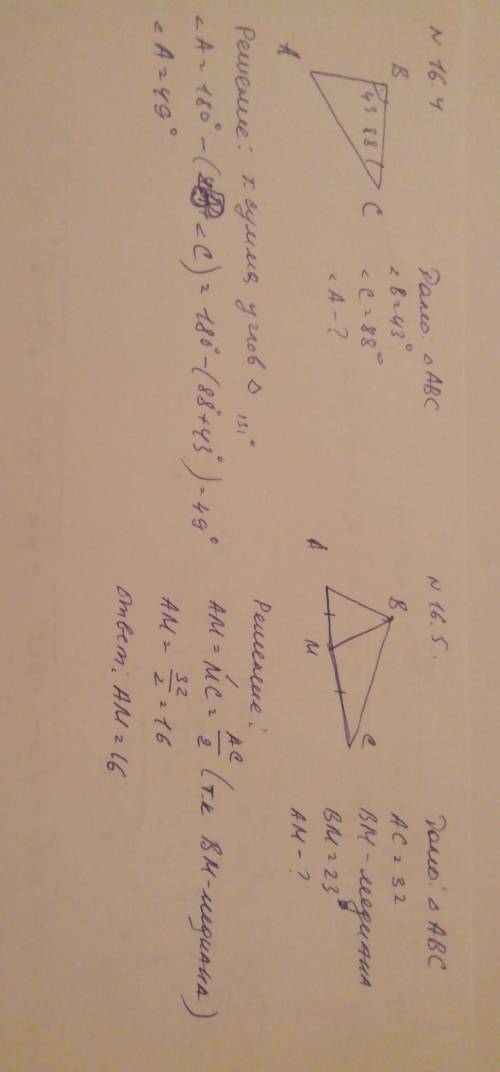 N 16.4
B
43 88
C
A
Дано: △ABC
∠B=43°
∠C=88°
∠A-?
Решение: т. сумма углов △
131°
∠A=180°-( ∠C)=180°-(88°+43°)=49°
∠A=49°
N 16.5.
B
A
M
C
Дано: △ABC
AC=32
BM-медиана
BM=23
AM-?
Решение:
AM=MC=AC/2 (т.к BM-медиана)
AM=32/2=16
Ответ: AM=16